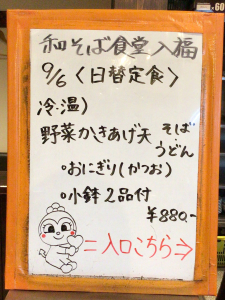 和そば食堂 入福
9/6〈日替定食〉
冷・温)
野菜かきあげ天 そば・うどん
・おにぎり(かつお)
・小鉢2品付
¥880.-
=入口こちら⇒
60